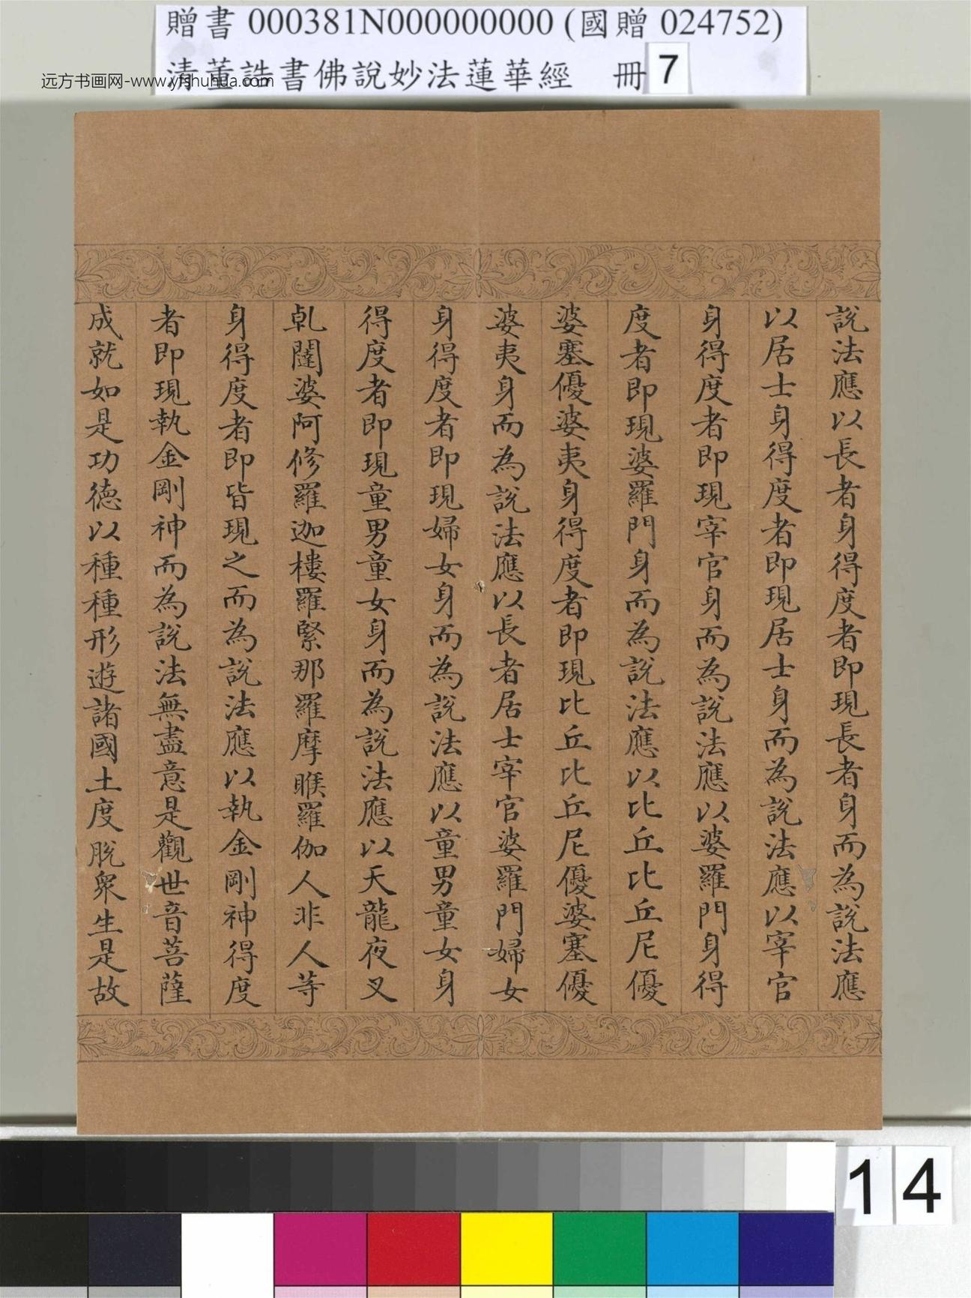 贈書 000381N000000000 (國贈 024752)
清董誥書佛說妙法蓮華經 冊 7
远方书画网-www.yfshuhua.com
說法應以長者身得度者即現長者身而為說法應
以居士身得度者即現居士身而為說法應以宰官
身得度者即現宰官身而為說法應以婆羅門身得
度者即現婆羅門身而為說法應以比丘比丘尼優
婆塞優婆夷身得度者即現比丘比丘尼優婆塞優
婆夷身而為說法應以長者居士宰官婆羅門婦女
身得度者即現婦女身而為說法應以童男童女身
得度者即現童男童女身而為說法應以天龍夜叉
乹闥婆阿修羅迦樓羅緊那羅摩睺羅伽人非人等
身得度者即皆現之而為說法應以執金剛神得度
者即現執金剛神而為說法無盡意是觀世音菩薩
成就如是功德以種種形遊諸國土度脫眾生是故
14